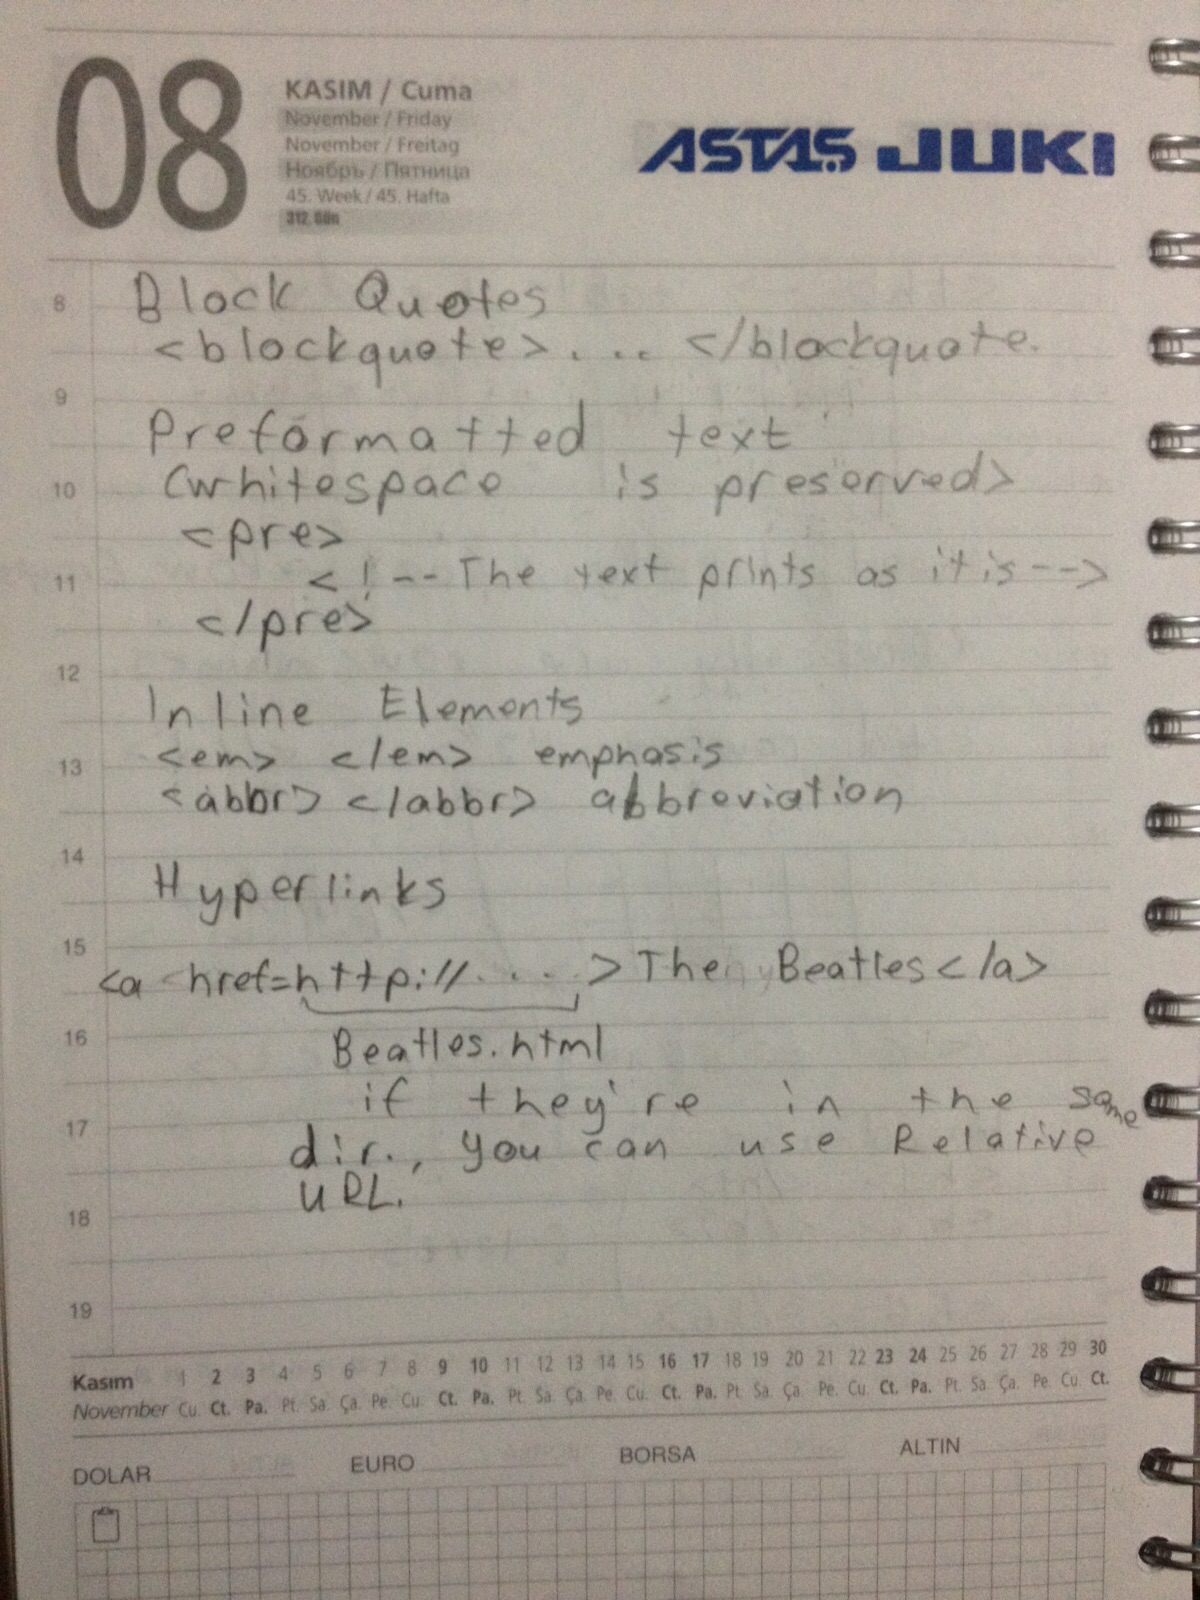 08
KASIM / Cuma
November / Friday
November / Freitag
Ноябрь / Пятница
45. Week / 45. Hafta
312. Gün
ASTAŞ JUKI
8
Block Quotes
<blockquote>.... </blockquote.
9
Preformatted text
10
(whitespace is preserved>
<pre>
11
<!-- The text prints as it is -->
</pre>
12
Inline Elements
13
<em> </em> emphasis
<abbr> </abbr> abbreviation
14
Hyperlinks
15
<a href=http://.....> The Beatles</a>
16
Beatles.html
if they're in the same
17
dir., you can use Relative
URL.
18
19
Kasım 1 2 3 4 5 6 7 8 9 10 11 12 13 14 15 16 17 18 19 20 21 22 23 24 25 26 27 28 29 30
November Cu. Ct. Pa. Pt. Sa. Ça. Pe. Cu. Ct. Pa. Pt. Sa. Ça. Pe. Cu. Ct. Pa. Pt. Sa. Ça. Pe. Cu. Ct. Pa. Pt. Sa. Ça. Pe. Cu. Ct.
DOLAR EURO BORSA ALTIN